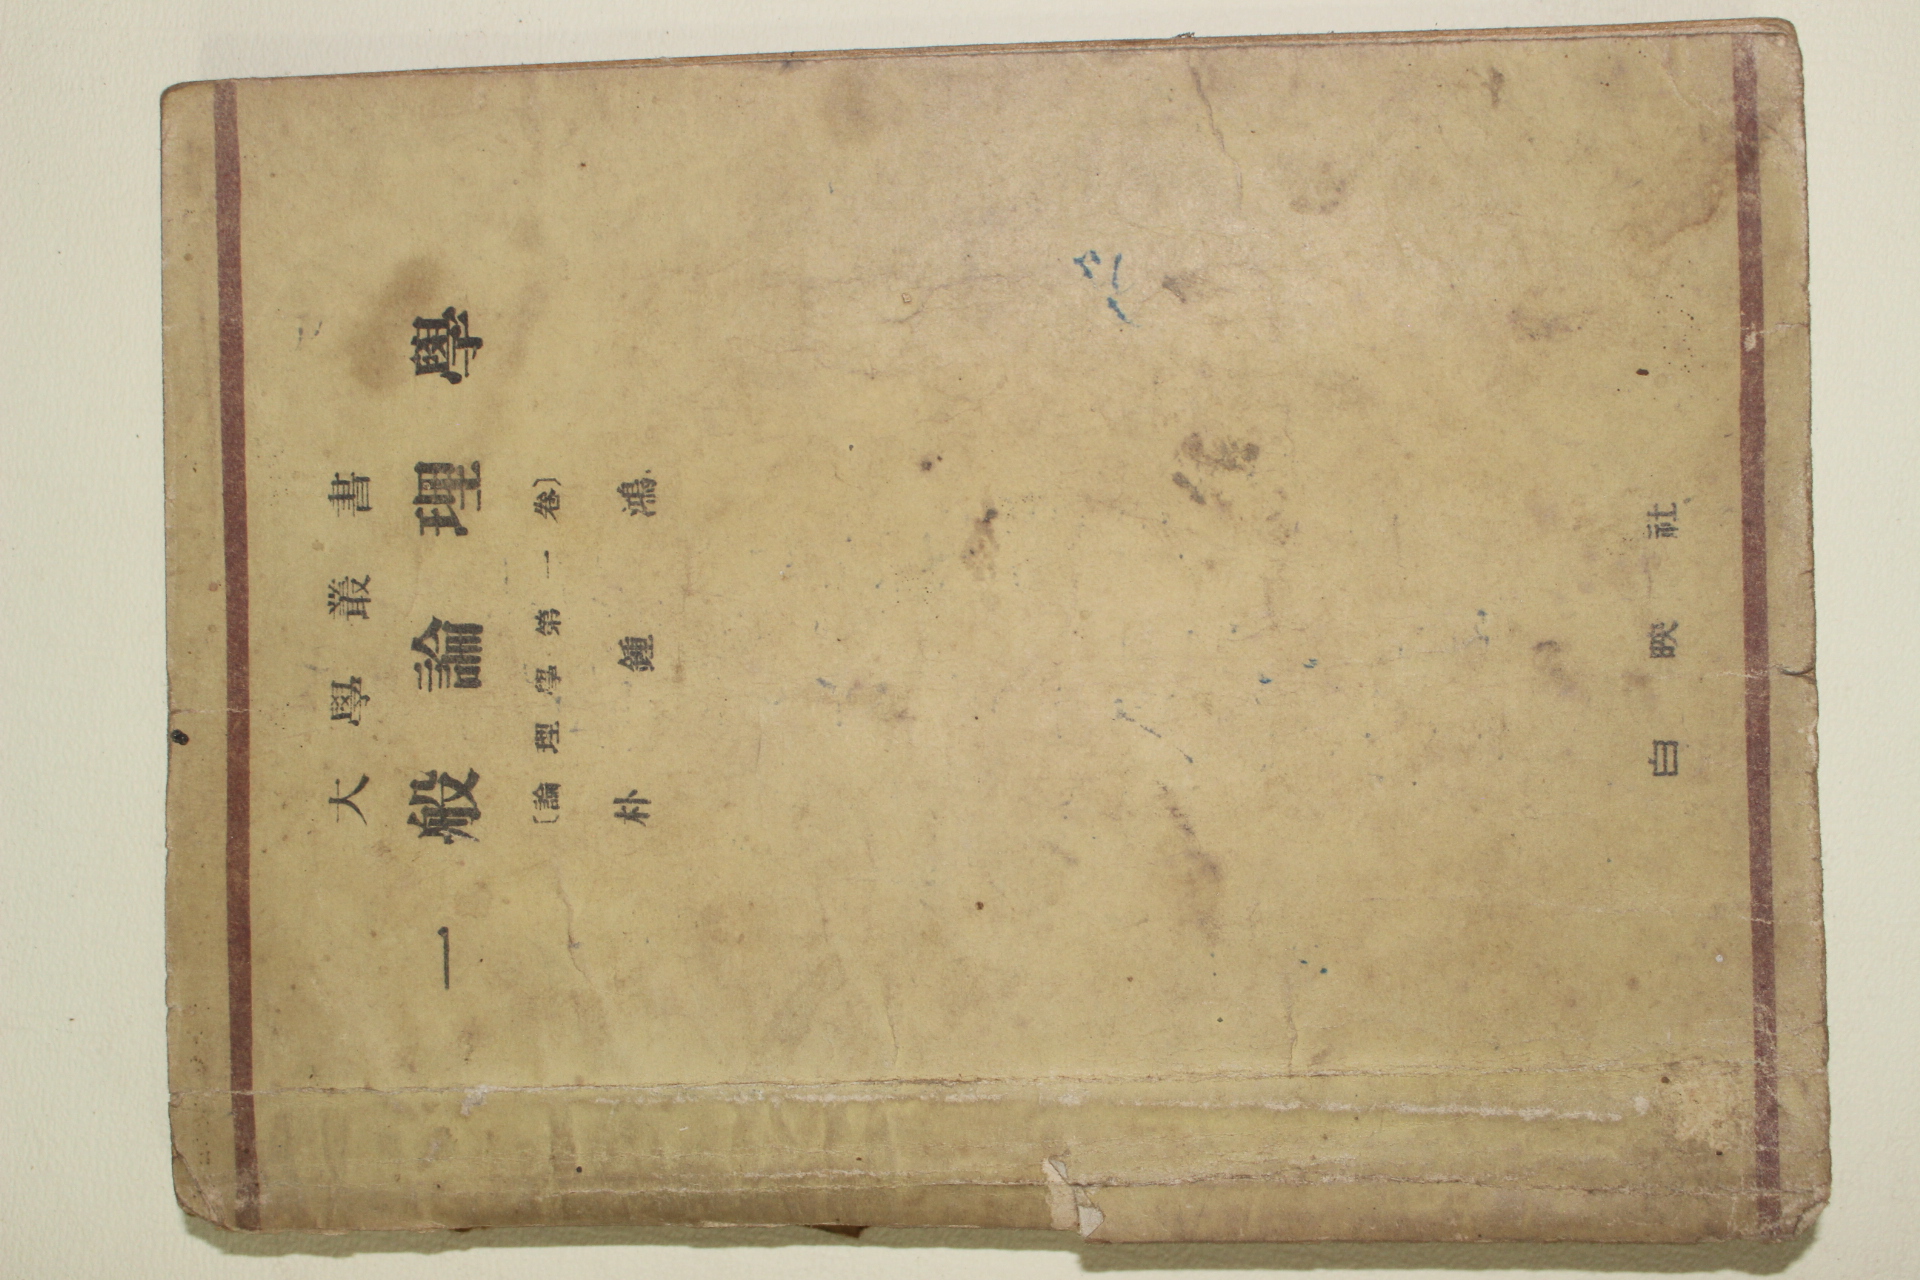 大學叢書
一般論理學
〔論理學第一卷〕
朴鍾鴻
白映社